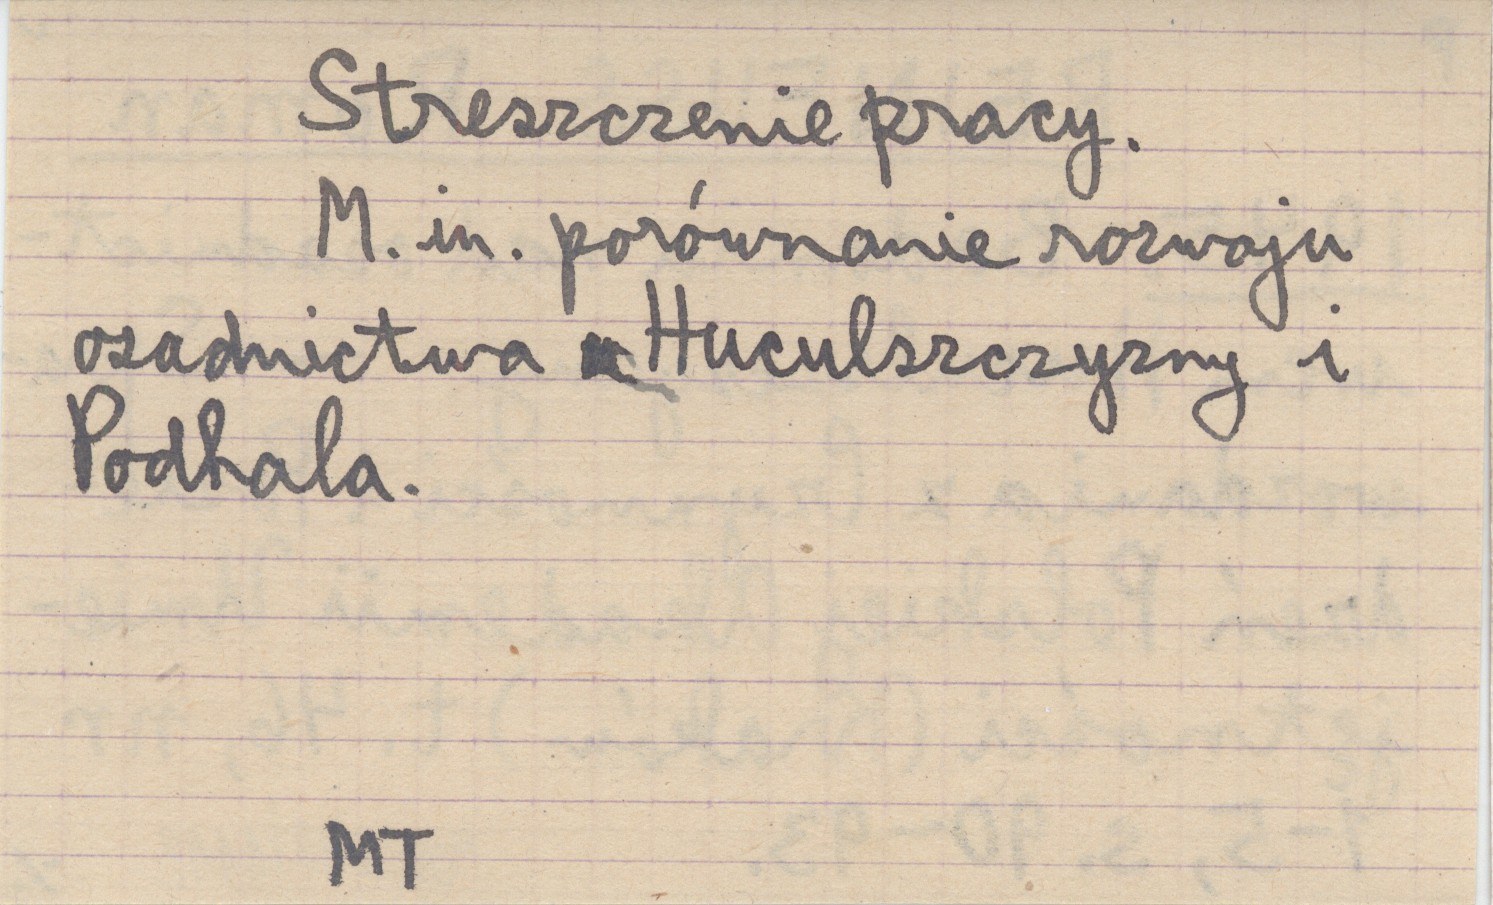 Streszczenie pracy.
M. in. porównanie rozwoju
osadnictwa Huculszczyzny i
Podhala.
MT